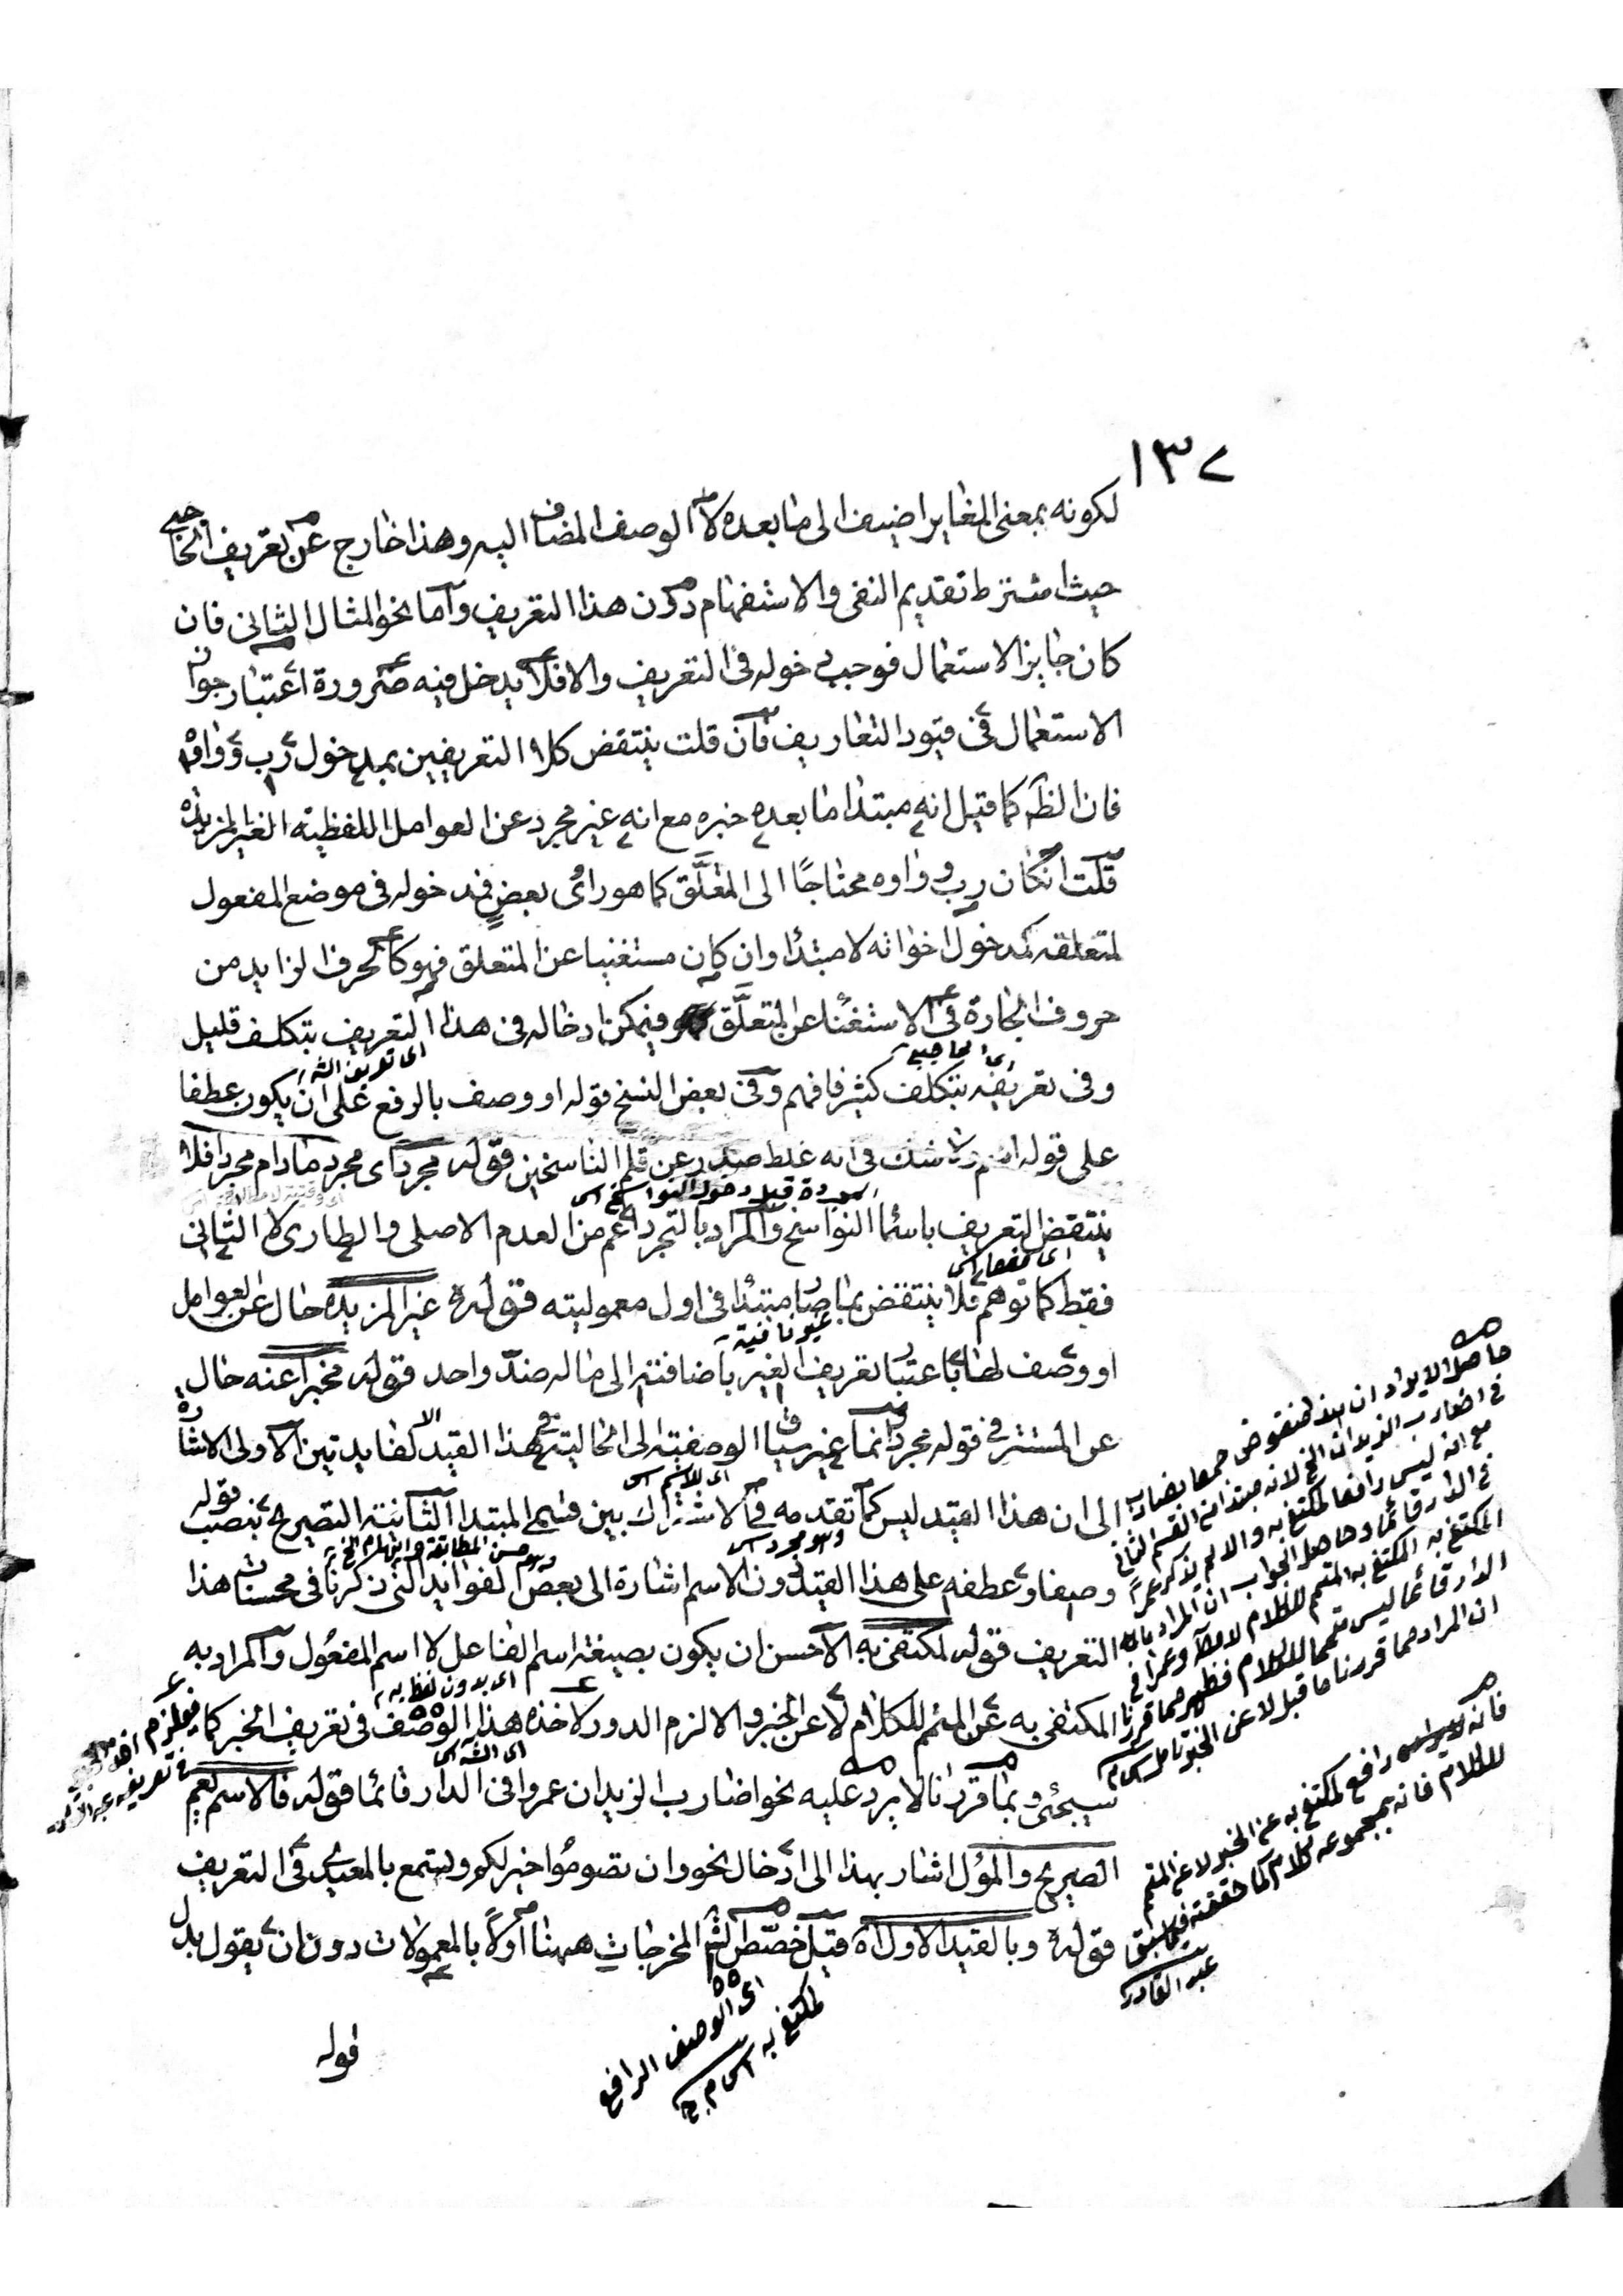 ١٣٧
لكونه بمعنى المغاير اضيف الى ما بعده لا الوصف المضاف اليه وهذا خارج عن تعريف الحاجبي
حيث اشترط تقديم النفى والاستفهام دون هذا التعريف وآما نحو المثال الثانى فان
كان جايز الاستعمال فوجب دخوله فى التعريف والا فلا يدخل فيه ضرورة اعتبار جواز
الاستعمال فى قيود التعاريف فآن قلت ينتقض كلا التعريفين بمدخول رب وواوه
فان الظه كما قيل انه مبتدا ما بعده خبره مع انه غير مجرد عن العوامل اللفظية الغير المزيدة
قلت انكان رب وواوه محتاجًا الى المتعلَّق كما هو راى بعضٍ فمدخوله فى موضع المفعول
لمتعلقه كمدخول اخواته لا مبتدا وان كان مستغنيا عن المتعلق فهو كالحرف الزايد من
حروف الجارة فى الاستغناء عن المتعلَّق فيمكن ادخاله فى هذا التعريف بتكلف قليل
اى الحاجبي
اى تعريف الشه
وفى تعريفه بتكلف كثير فافهم وفى بعض النسخ قوله او وصف بالرفع على ان يكون عطفا
على قوله اسم ولا شك فى انه غلط صدر عن قلم الناسخين قوله مجرد اى مجرد ما دام مجردا فلا
قبل دخول النواسخ
ينتقض التعريف باسماء النواسخ والمراد بالتجرد اعم من العدم الاصلى والطارى لا الثانى
فقط كما توهم فلا ينتقض بما صار مبتدا فى اول معموليته قوله غير المزيدة حال عن العوامل
او وصف لها باعتبار تعريف الغير باضافته الى ماله ضدّ واحد قوله مخبرا عنه حال
عن المستتر فى قوله مجرد وانما غير سياق الوصفية الى الحالية فى هذا القيد لفايدتين الاولى الاشارة
اى للاسم
الى ان هذا القيد ليس كما تقدمه فى الاشتراك بين قسمى المبتدا الثانية التصريح بنصب قوله
وهو مجرد
وهو حسن المطابقة
وصفا وعطفه على هذا القيد دون الاسم اشارة الى بعض الفوايد التى ذكرنا فى محسنات هذا
التعريف قوله لمكتفى به الاحسن ان يكون بصيغة اسم الفاعل لا اسم المفعول والمراد به
اى بدون لفظ به
المكتفى به عن المتمم للكلام لا عن الخبر والا لزم الدور لاخذه هذا الوصف فى تعريف الخبر كما
سيجئ وبما قررنا لا يرد عليه نحو اضارب الزيدان عمروا فى الدار قائما قوله فالاسم يعم
الصريح والمؤل اشار بهذا الى ادخال نحو وان تصوموا خير لكم وتسمع بالمعيدى فى التعريف
قوله وبالقيد الاول اه قيل خصّص الشه المخرجات ههنا اولاً بالمعمولات دون ان يقول بدل
قوله
اى الوصف الرافع
لمكتفى به
حاصل الايراد ان هذا منقوض جمعا بضارب
فى اضارب الزيدان الخ لانه مبتدا من القسم الثانى
مع انه ليس رافعا لمكتفى به والا لم يذكر عمرا
فى الدار قائما وحاصل الجواب ان المراد بالمكتفى به
المكتفى به المتمم للكلام لا مطلقا وعمرا فى
الدار قائما ليس متمما للكلام فظهر مما قررنا
ان المراد مما قررنا ما قبل لا عن الخبر تأمل
رافع لمكتفى به عن الخبر لا عن المتمم
للكلام فانه بمجموعه كلام كما حققته فيما سبق
عبد القادر